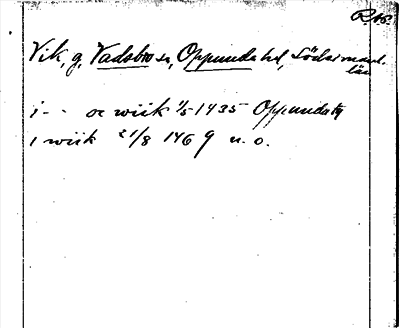 R. 16.
Vik, g. Vadsbro sn, Oppunda hd, Söderman.
län
i - - oc wiik 1/5 1435 Oppunda
i wiik 21/8 1469 u. o.